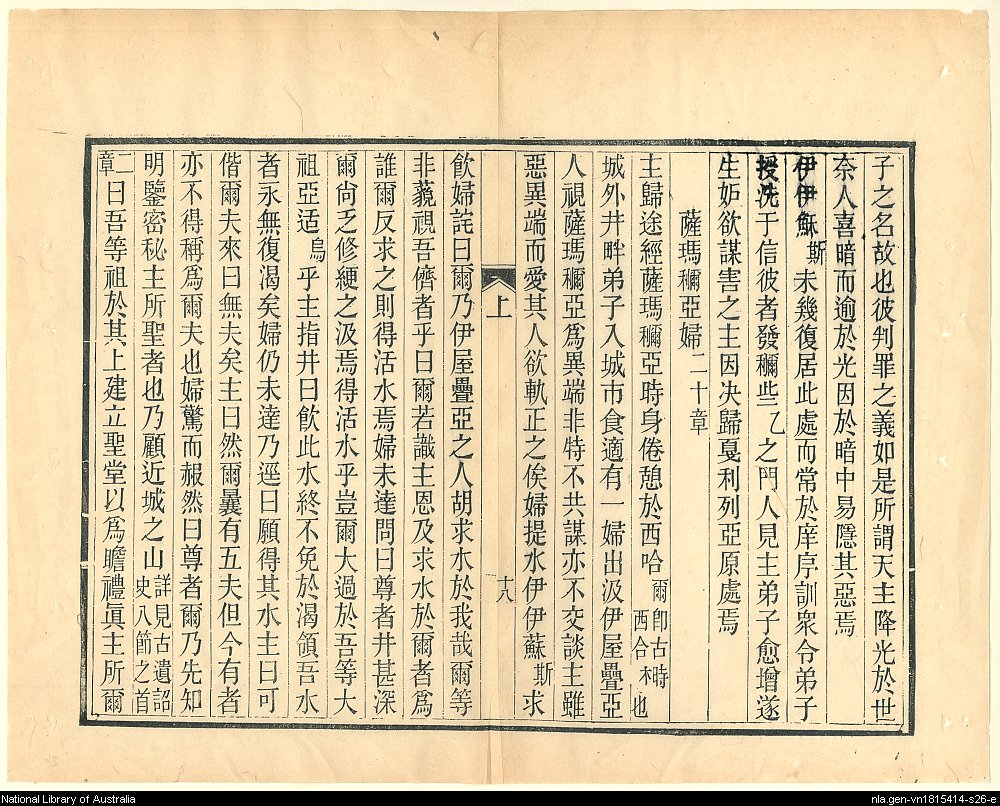 子之名故也彼判罪之義如是所謂天主降光於世
奈人喜暗而逾於光因於暗中易隱其惡焉
伊伊穌斯未幾復居此處而常於庠序訓衆令弟子
授洗于信彼者發穪些乙之門人見主弟子愈增遂
生妒欲謀害之主因决歸戛利列亞原處焉
薩瑪穪亞婦二十章
主歸途經薩瑪穪亞時身倦憩於西哈爾卽古時西合木也
城外井畔弟子入城市食適有一婦出汲伊屋疊亞
人視薩瑪穪亞爲異端非特不共謀亦不交談主雖
惡異端而愛其人欲軌正之俟婦提水伊伊蘇斯求
上
十八
飮婦詫曰爾乃伊屋疊亞之人胡求水於我哉爾等
非藐視吾儕者乎曰爾若識主恩及求水於爾者爲
誰爾反求之則得活水焉婦未達問曰尊者井甚深
爾尙乏修綆之汲焉得活水乎豈爾大過於吾等大
祖亞适烏乎主指井曰飮此水終不免於渴領吾水
者永無復渴矣婦仍未達乃逕曰願得其水主曰可
偕爾夫來曰無夫矣主曰然爾曩有五夫但今有者
亦不得稱爲爾夫也婦驚而赧然曰尊者爾乃先知
明鑒密秘主所聖者也乃顧近城之山詳見古遺詔史八節之首
二章曰吾等祖於其上建立聖堂以爲瞻禮眞主所爾
National Library of Australia
nla.gen-vn1815414-s26-e